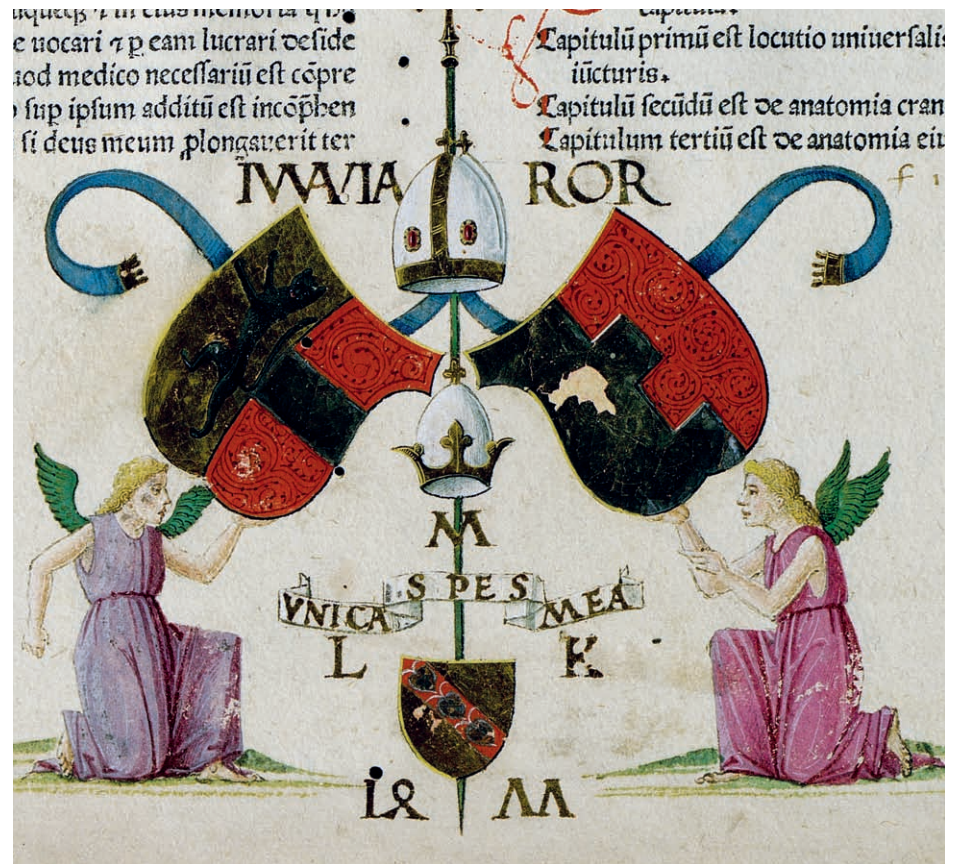 e uocari ⁊ p̲ eam lucrari deside
uod medico necessariū est cōpre
sup ipsum additū est incōp̲hen
si deus meum ꝓlongauerit ter
Capitulū primū est locutio uniuersalis
iūcturis.
Capitulū secūdū est de anatomia cran
Capitulum tertiū est de anatomia eiu
ROR
M
VNICA SPES MEA
L K